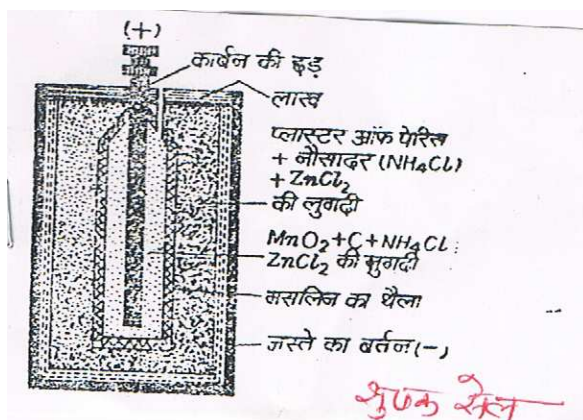 (+)
कार्बन की छड़
लाख
प्लास्टर ऑफ पेरिस
+ नौसादर (NH4Cl)
+ ZnCl2
की लुगदी
MnO2+C+NH4Cl
ZnCl2 की लुगदी
मसलिन का थैला
जस्ते का बर्तन (-)
शुष्क सेल